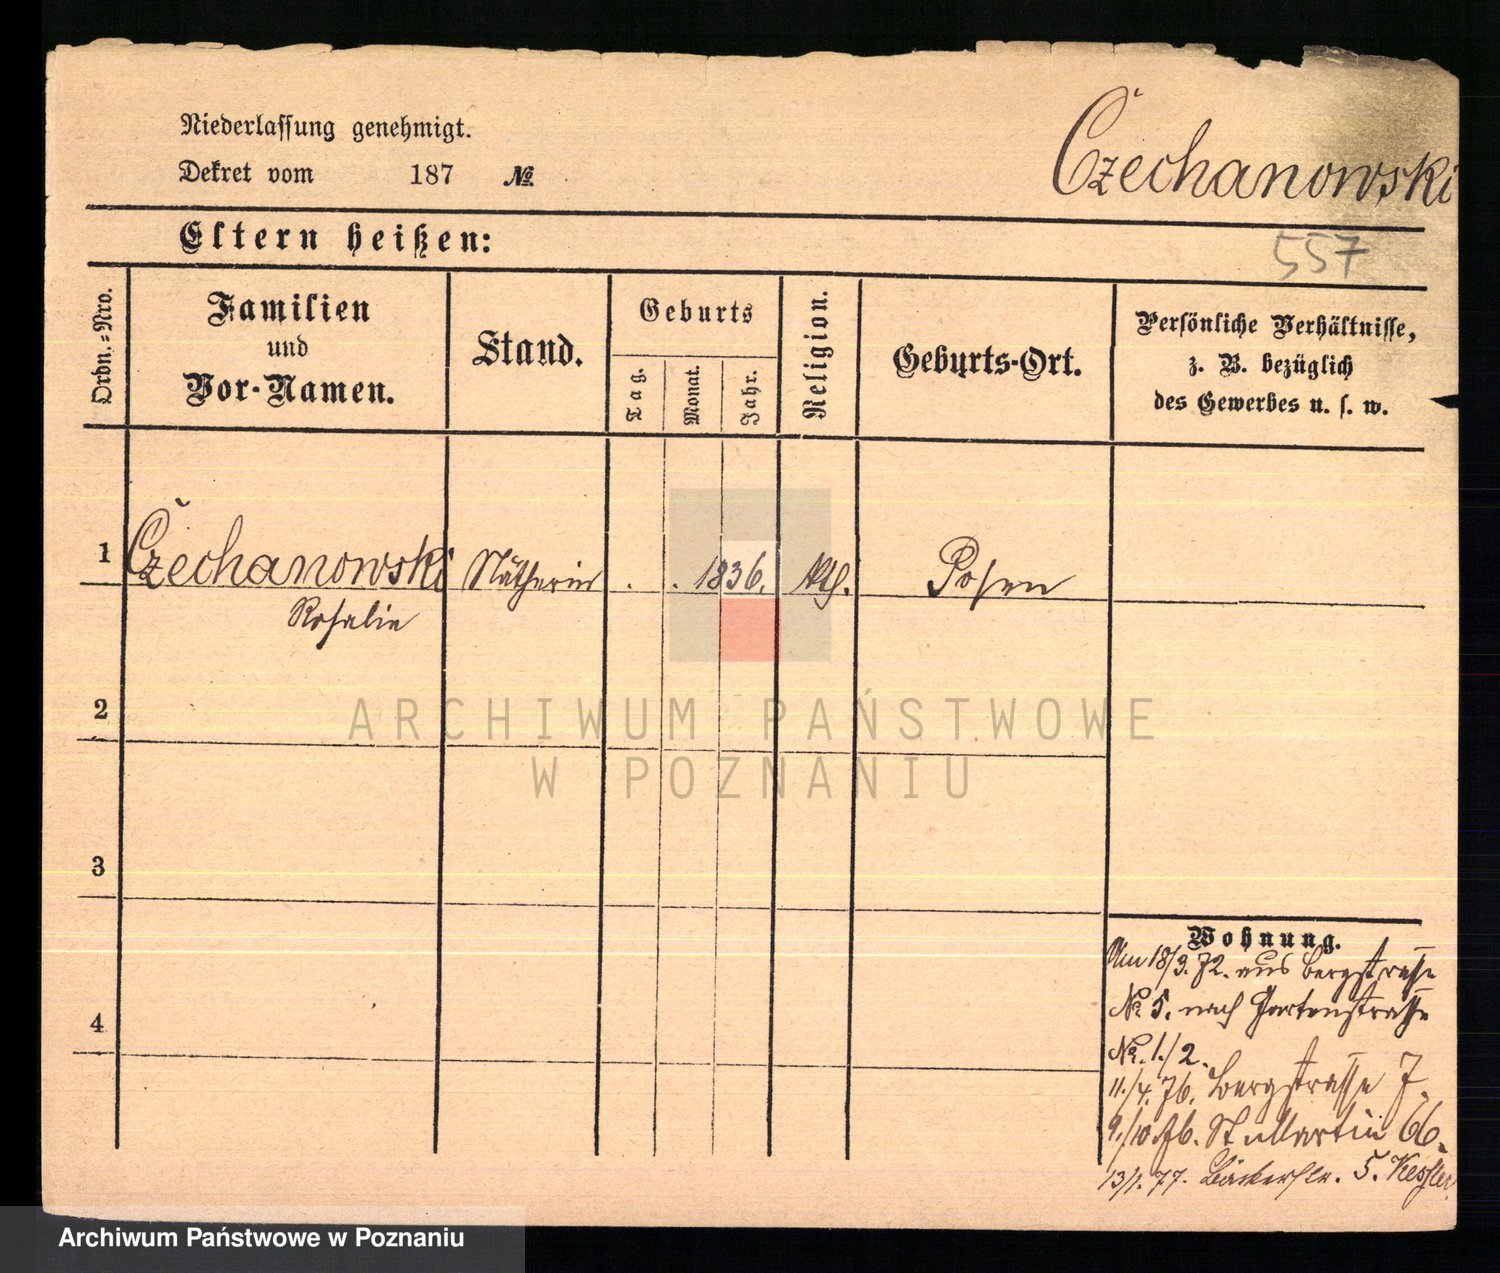 Niederlassung genehmigt.
Dekret vom 187 №
Czechanowski
Eltern heißen:
557
Ordn.-Nro.
Familien
und
Vor-Namen.
Stand.
Geburts
Tag.
Monat.
Jahr.
Religion.
Geburts-Ort.
Persönliche Verhältnisse,
z. B. bezüglich
des Gewerbes u. s. w.
1 Czechanowski Nätherin . . 1836. kth. Posen
Rosalie
2
ARCHIWUM PAŃSTWOWE
W POZNANIU
3
4
Wohnung.
Am 18/3. 72. aus Bergstrasse
№ 5. nach Gartenstrasse
№. 1./2.
11./4. 76. Bergstrasse 7.
9./10. 76. St Martin 66.
13/1. 77. Bäckerstr. 5. Kessler
Archiwum Państwowe w Poznaniu